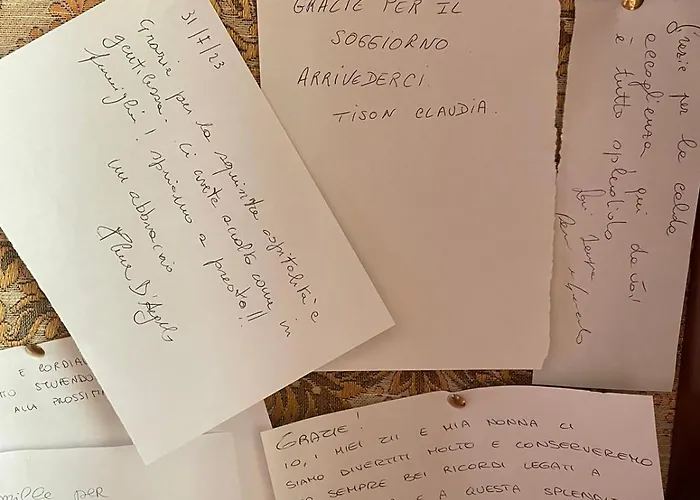 31/7/23
Grazie per la squisita ospitalità e
gentilezza! Ci avete accolto come in
famiglia! Speriamo a presto!!
un abbraccio
GRAZIE PER IL
SOGGIORNO
ARRIVEDERCI
TISON CLAUDIA.
Grazie per la calda
accoglienza, qui da voi
è tutto splendido
E CORDIA
STUPENDO
ALLA PROSSIMA
mille per
GRAZIE!
IO, I MIEI ZII E MIA NONNA CI
SIAMO DIVERTITI MOLTO E CONSERVEREMO
SEMPRE BEI RICORDI LEGATI A
E A QUESTA SPLENDI